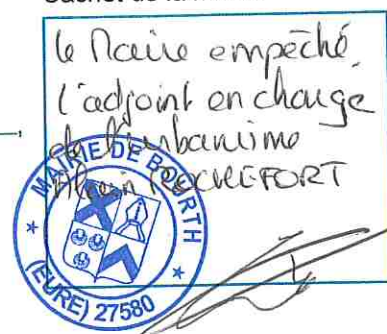 Cachet de la
le Maire empêché
l'adjoint en charge
de l'urbanisme
Alain ROCHEFORT
MAIRIE DE BOURTH
(EURE) 27580